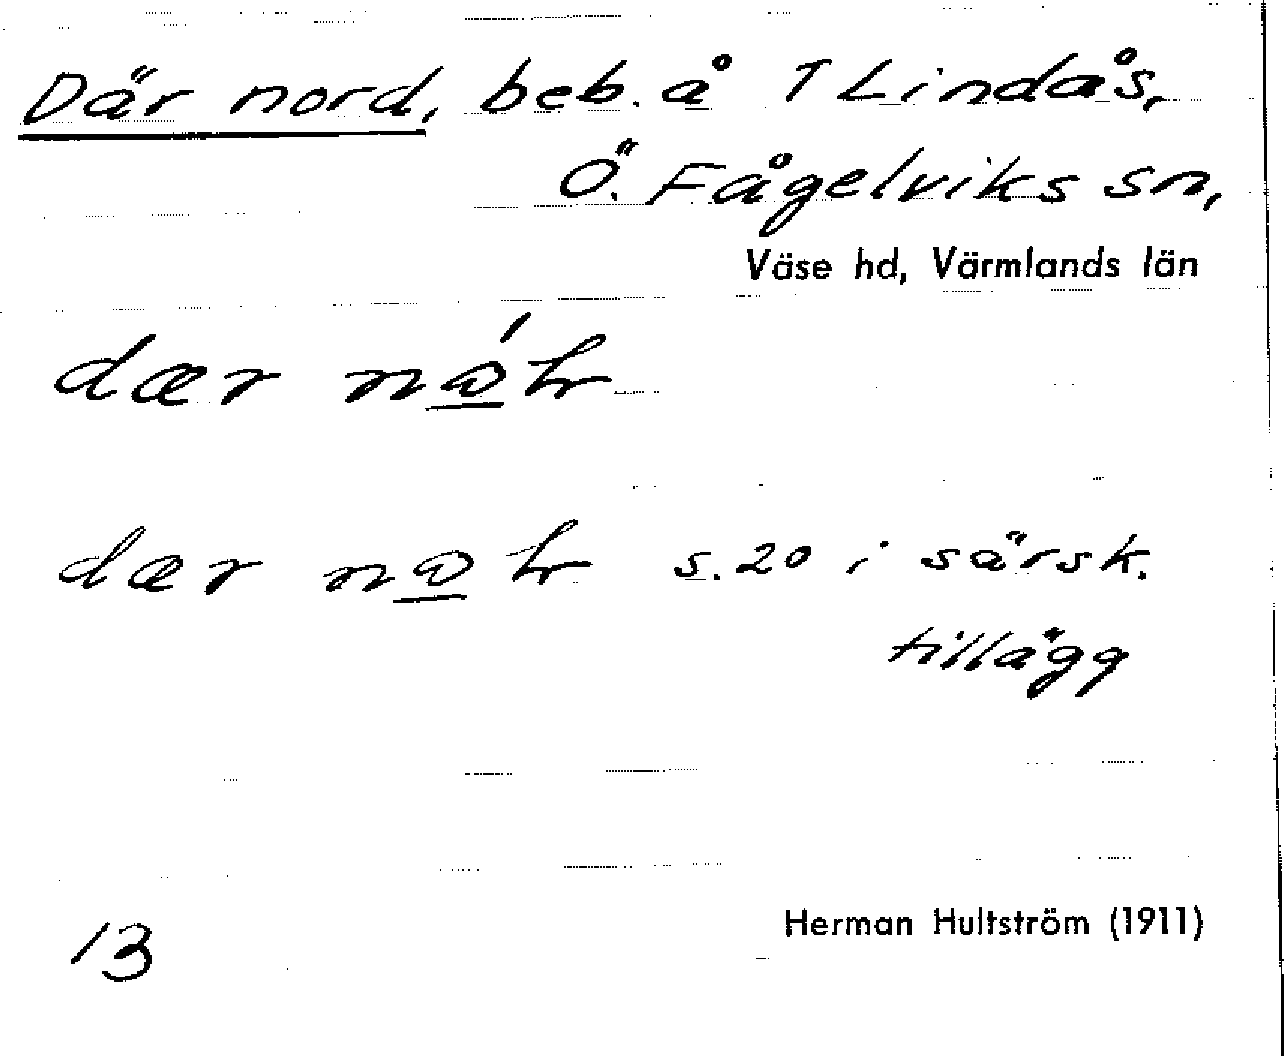 Där nord, beb. å 1 Lindås,
Ö. Fågelviks sn,
Väse hd, Värmlands län
dær
dær s. 20 i särsk.
tillägg
13 Herman Hultström (1911)